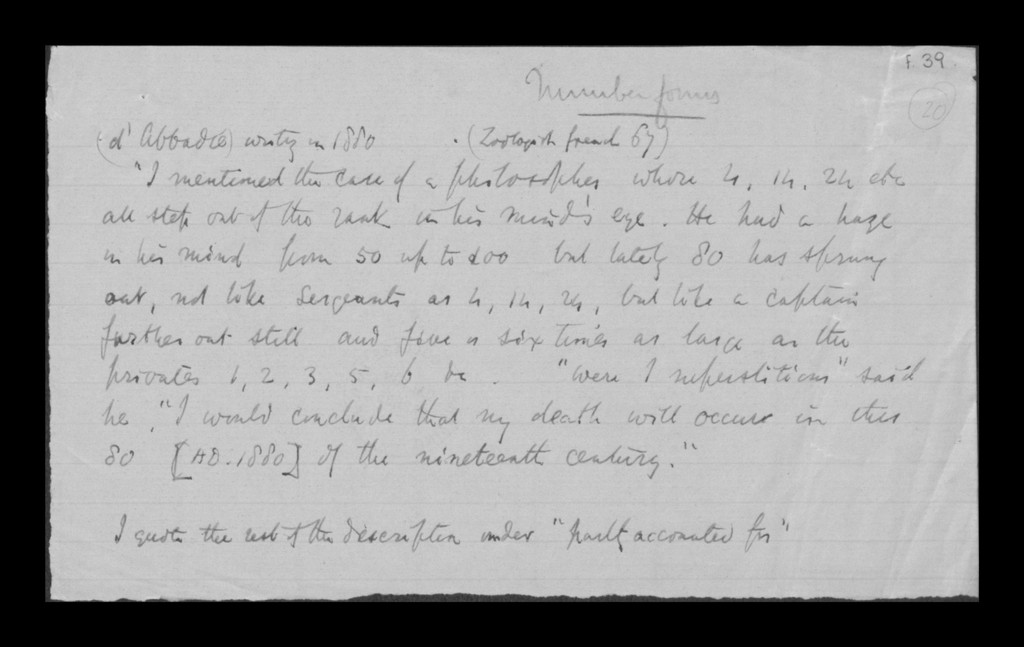 f. 39.
20
Number forms
(d' Abbadie) writing in 1880 . (Zoologist friend 67)
"I mentioned the case of a philosopher whose 4, 14, 24 etc
all step out of the rank in his mind's eye. He had a haze
in his mind from 50 up to 100 but lately 80 has sprung
out, not like sergeants as 4, 14, 24, but like a captain
further out still and five or six times as large as the
privates 1, 2, 3, 5, 6 &c. "Were I superstitious" said
he, "I would conclude that my death will occur in this
80 [AD. 1880] of the nineteenth century."
I quote the rest of the description under "partly accounted for"